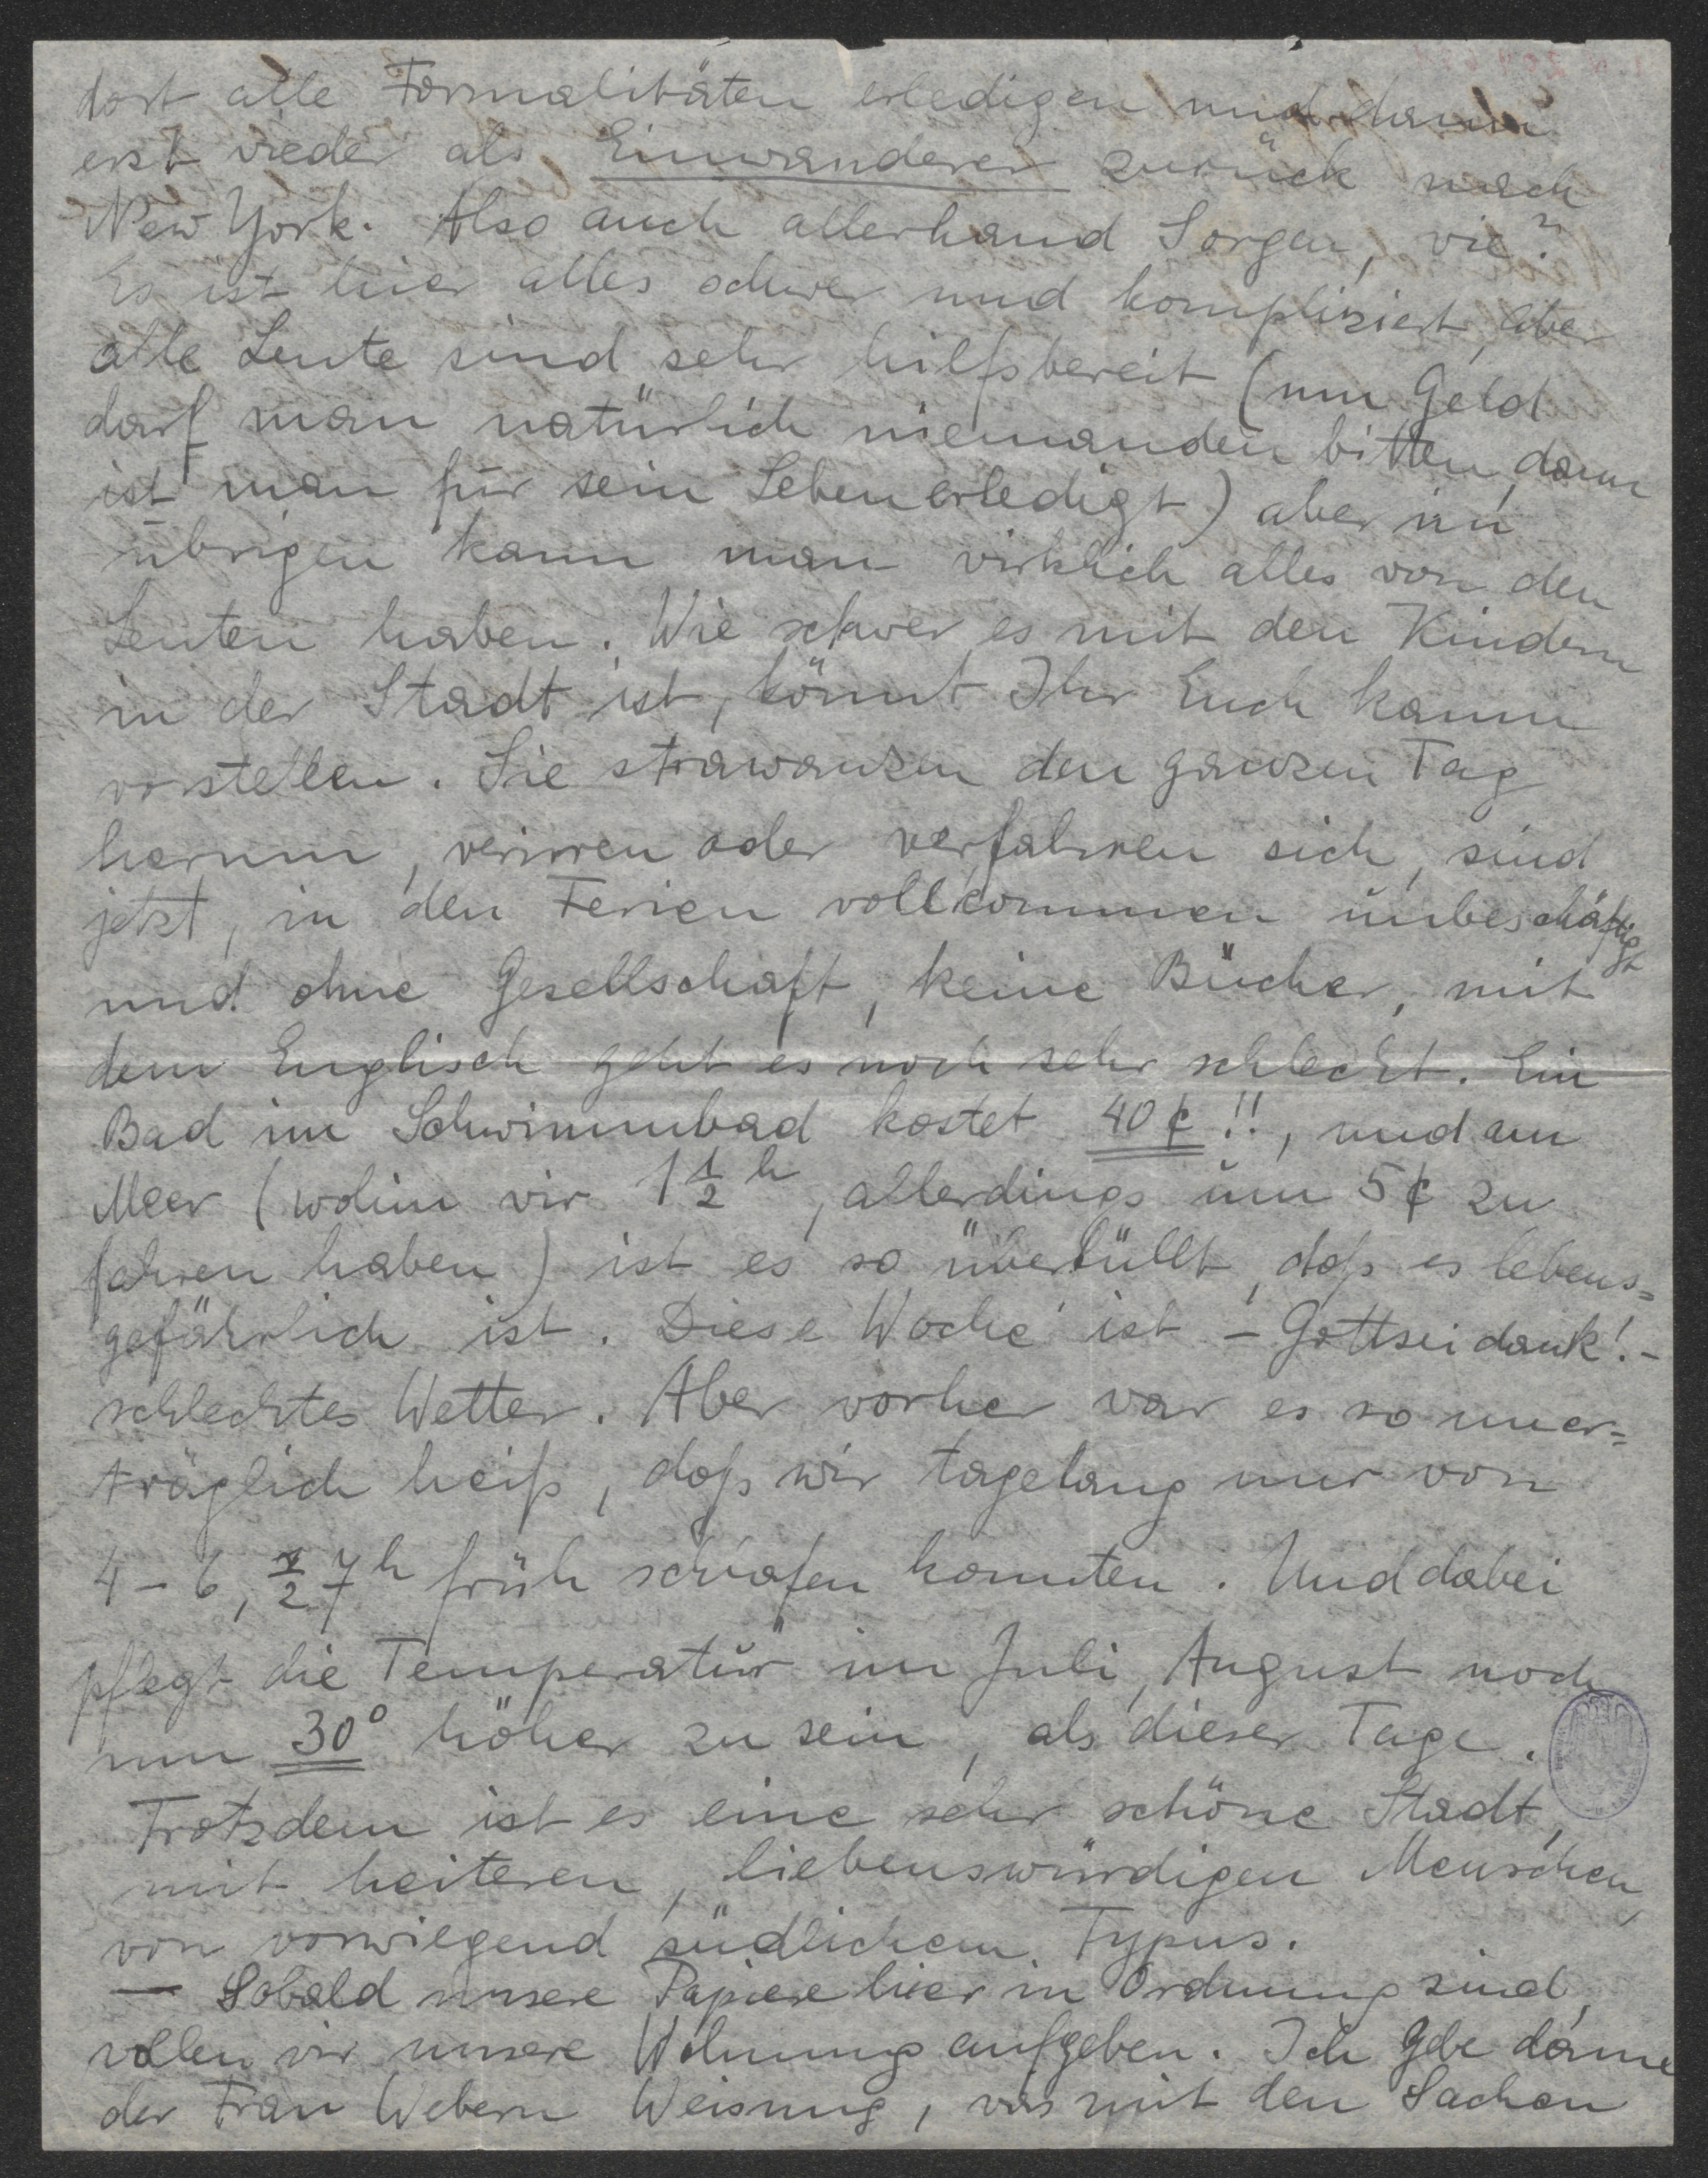 dort alle Formalitäten erledigen und dann
erst wieder als Einwanderer zurück nach
New York. Also auch allerhand Sorgen, wie?
Es ist hier alles schwer und kompliziert, aber
alle Leute sind sehr hilfsbereit (um Geld
darf man natürlich niemanden bitten, dann
ist man für sein Leben erledigt) aber im
übrigen kann man wirklich alles von den
Leuten haben. Wie schwer es mit den Kindern
in der Stadt ist, könnt Ihr Euch kaum
vorstellen. Sie strawanzen den ganzen Tag
herum, verirren oder verfahren sich, sind
jetzt, in den Ferien vollkommen unbeschäftigt
und ohne Gesellschaft, keine Bücher, mit
dem Englisch geht es noch sehr schlecht. Ein
Bad im Schwimmbad kostet 40 ¢!!, und am
Meer (wohin wir 1 1/2 h, allerdings um 5 ¢ zu
fahren haben) ist es so überfüllt, daß es lebens=
gefährlich ist. Diese Woche ist – Gottseidank! –
schlechtes Wetter. Aber vorher war es so uner=
träglich heiß, daß wir tagelang nur von
4 – 6, 1/2 7 h früh schlafen konnten. Und dabei
pflegt die Temperatur im Juli, August noch
um 30° höher zu sein, als dieser Tage.
Trotzdem ist es eine sehr schöne Stadt,
mit heiteren, liebenswürdigen Menschen,
von vorwiegend südlichem Typus.
— Sobald unsere Papiere hier in Ordnung sind,
wollen wir unsere Wohnung aufgeben. Ich gebe dann
der Frau Webern Weisung, was mit den Sachen